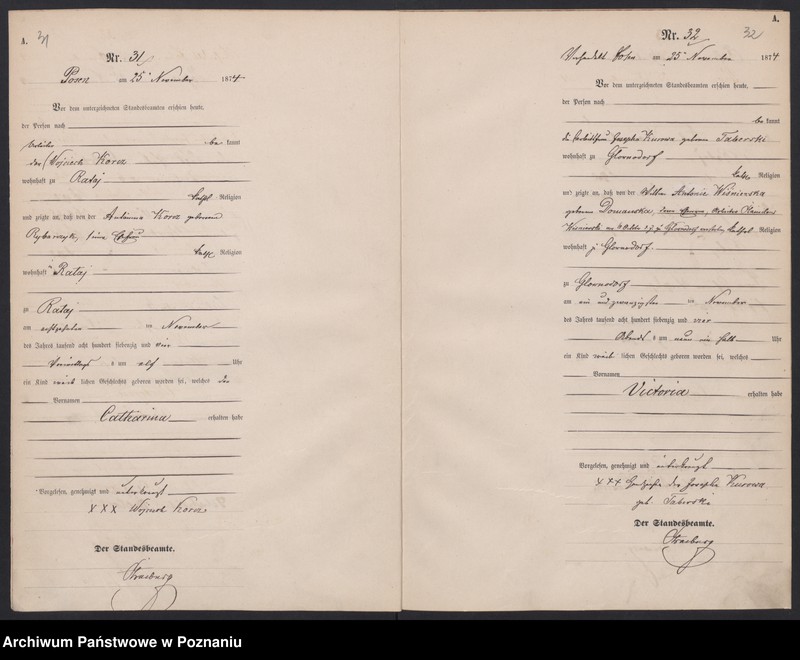 A.
31
Nr. 31
Posen am 25t November 1874
Vor dem unterzeichneten Standesbeamten erschien heute,
der Person nach
be kannt
der Wojciech Korcz
wohnhaft zu Rataj
kathol. Religion
und zeigte an, daß von der Antonina Korcz geborene
Rybarczyk, seine Ehefrau
kathol. Religion
wohnhaft in Rataj
zu Rataj
am achtzehnten ten November
des Jahres tausend acht hundert siebenzig und vier
Vormittags um elf Uhr
ein Kind weib lichen Geschlechts geboren worden sei, welches den
Vornamen
Catharina erhalten habe
Vorgelesen, genehmigt und unterkreuzt
XXX Wojciech Korcz
Der Standesbeamte.
A.
32
Nr. 32
Verhandelt Posen am 25t November 1874
Vor dem unterzeichneten Standesbeamten erschien heute,
der Person nach
be kannt
die Josepha Kurowa geborene Taberski
wohnhaft zu Glownodorf
kathol. Religion
und zeigte an, daß von der Wittwe Antonie Wiśniewska
geborene Domańska,
kathol. Religion
wohnhaft zu Glownodorf.
zu Glownodorf
am ein und zwanzigsten ten November
des Jahres tausend acht hundert siebenzig und vier
Abends um neun ein halb Uhr
ein Kind weib lichen Geschlechts geboren worden sei, welches
Vornamen
Victoria erhalten habe
Vorgelesen, genehmigt und unterkreuzt
XXX Handzeichen der Josepha Kurowa
geb. Taberski
Der Standesbeamte.
Archiwum Państwowe w Poznaniu